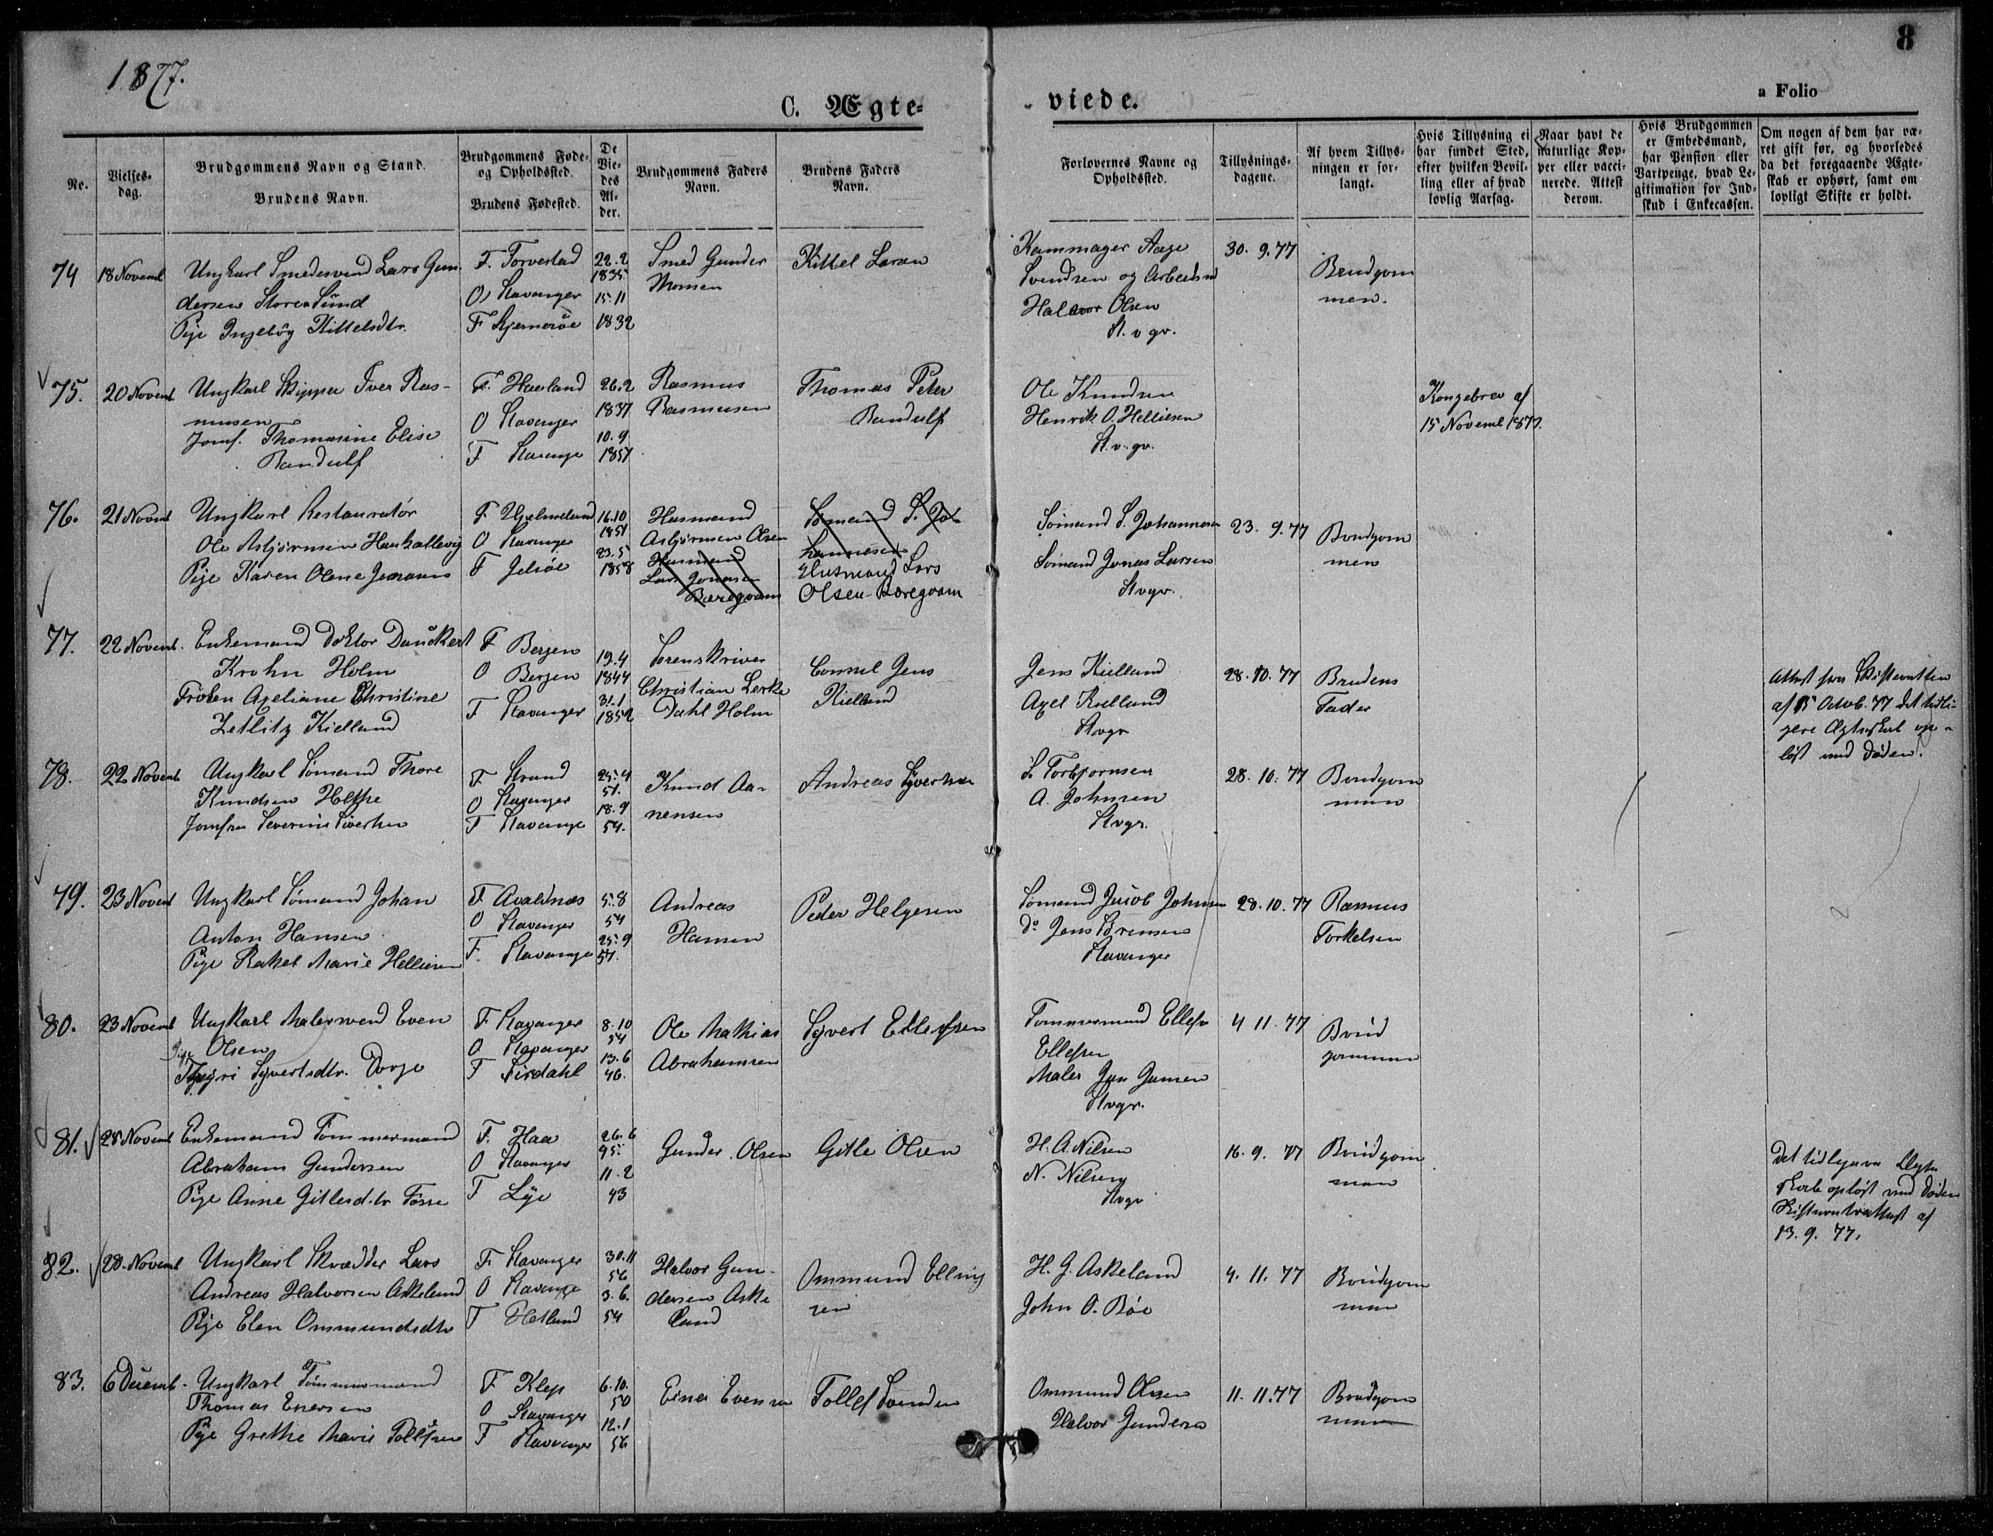 1877.
8
C. Ægte-
viede.
a Folio
No.
Vielses-
dag.
Brudgommens Navn og Stand.
Brudens Navn.
Brudgommens Føde-
og Opholdssted.
Brudens Fødested.
De
Vie-
des
Al-
der.
Brudgommens Faders
Navn.
Brudens Faders
Navn.
Forlovernes Navne og
Opholdssted.
Tillysnings-
dagene.
Af hvem Tillys-
ningen er for-
langt.
Hvis Tillysning ei
har fundet Sted,
efter hvilken Bevil-
ling eller af hvad
lovlig Aarsag.
Naar havt de
naturlige Kop-
per eller vacci-
nerede. Attest
derom.
Hvis Brudgommen
er Embedsmand,
har Pension eller
Vartpenge, hvad Le-
gitimation for Ind-
skud i Enkecassen.
Om nogen af dem har væ-
ret gift før, og hvorledes
da det foregaaende Ægte-
skab er ophørt, samt om
lovligt Skifte er holdt.
74
18 Novemb
Ungkarl Smedesvend Lars Gun-
dersen Store Sund
Pige Ingebøg Kittelsdtr.
F. Torvestad
O Stavanger
F Hjernerøe
22.2
1835
15.11
1832
Smed Gunder
Thomsen
Kittel Larsen
Kammager Aage
Svendsen og Arbeidsm
Halvor Olsen
St.v.gr.
30. 9. 77
Brudgom
men.
75.
20 Novemb
Ungkarl Skipper Iver Ras-
mussen
Jomf. Thomasine Elise
Randulf
F. Haaland
O Stavanger
F Stavanger
26.2
1837
10.9
1857
Rasmus
Rasmussen
Thomas Peter
Randulf
Ole Knudsen
Henrik O. Helliesen
St.v.gr.
Kongebrev af
15 Novemb 1877
76.
21 Novmb
Ungkarl Restauratør
Ole Asbjørnsen Haukallevig
Pige Karen Olene Jonsen
F Hjelmeland
O Stavanger
F Jelsøe
16.10
1851
23.5
1858
Husmand
Asbjørnsen Olsen
Husmand
Lars Jonasen
Baregaam
Sømand S. Jo-
hannesen
Husmand Lars
Olsen Baregaam
Sømand S. Johannesen
Sømand Jonas Larsen
Stvgr.
23. 9. 77
Brudgom
men
77.
22 Novemb.
Enkemand Doktor Danckert
Krohn Holm
Frøken Axeliane Christine
Zetlitz Kielland
F Bergen
O Bergen
F Stavanger
19.4
1844
31.1
1852
Sorenskriver
Christian Lerke
Dahl Holm
Consul Jens
Kielland
Jens Kielland
Axel Kielland
Stvgr
28. 10. 77
Brudens
Fader
Attest fra Skifteretten
af 15 Octob. 77 det tidli-
gere Ægteskab op-
løst ved Døden.
78.
22 Novemb
Ungkarl Sømand Thore
Knudsen Helthe
Jomfru Severine Sivertsen
F. Strand
O Stavanger
F Stavanger
25.4
51.
18.9
54.
Knud Aa-
nensen
Andreas Syvertsen
S. Torbjørnsen
A. Johnsen
Stvgr.
28. 10. 77
Brudgom
men
79.
23 Novemb
Ungkarl Sømand Johan
Anton Hansen
Pige Rakel Marie Helliesen
F. Avaldnæs
O Stavanger
F. Stavanger
5.8
54
25.9
57.
Andreas
Hansen
Peder Helgesen
Sømand Jacob Johnsen
do Jens Sørensen
Stavanger
28. 10. 77
Rasmus
Torkelsen
80.
23 Novemb
Ungkarl Malersvend Even
Olsen
Pige
Syvertsdtr. Dorge
F. Stavanger
O Stavanger
F Sirdahl
8.10
54
13.6
46.
Ole Mathias
Abrahamsen
Syvert Ellefsen
Tømmermand Ellef
Ellefsen
Maler Jan Jansen
Stvgr.
4 11. 77
Brud
gommen
81.
28 Novemb
Enkemand Tømmermand
Abraham Gundersen
Pige Anne Gitlesdtr Tosse
F. Haa
O Stavanger
F Lye
26.6
45.
11.2
43
Gunder Olsen
Gitle Olsen
H. A. Nilsen
N. Nilsen
Stvgr
16. 9. 77
Brudgom
men
Det tidligere Ægte
skab opløst ved Døden
Skifteretsattest af
13. 9. 77.
82.
28. Novemb
Ungkarl Skrædder Lars
Andreas Halvorsen Askeland
Pige Elen Ommundsdtr
F. Stavanger
O Stavanger
F Hetland
30.11
56
3.6.
54
Halvor Gun-
dersen Aske
land
Ommund Elling
sen
H. G. Askeland
John O. Bøe
4. 11. 77
Brudgom
men
83.
6 Decemb.
Ungkarl Tømmermand
Thomas Enersen
Pige Grethe Marie Tollefsen
F. Klep
O Stavanger
F Stavanger
6.10.
50
12.1
56
Einer Evensen
Tollef Svendsen
Ommund Olsen
Halvor Gundersen
11. 11. 77
Brudgom
men